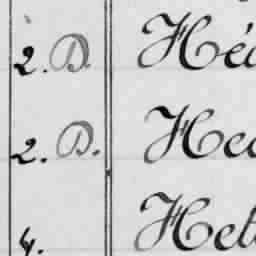 2. D. Hé
2. D. He
4. Het